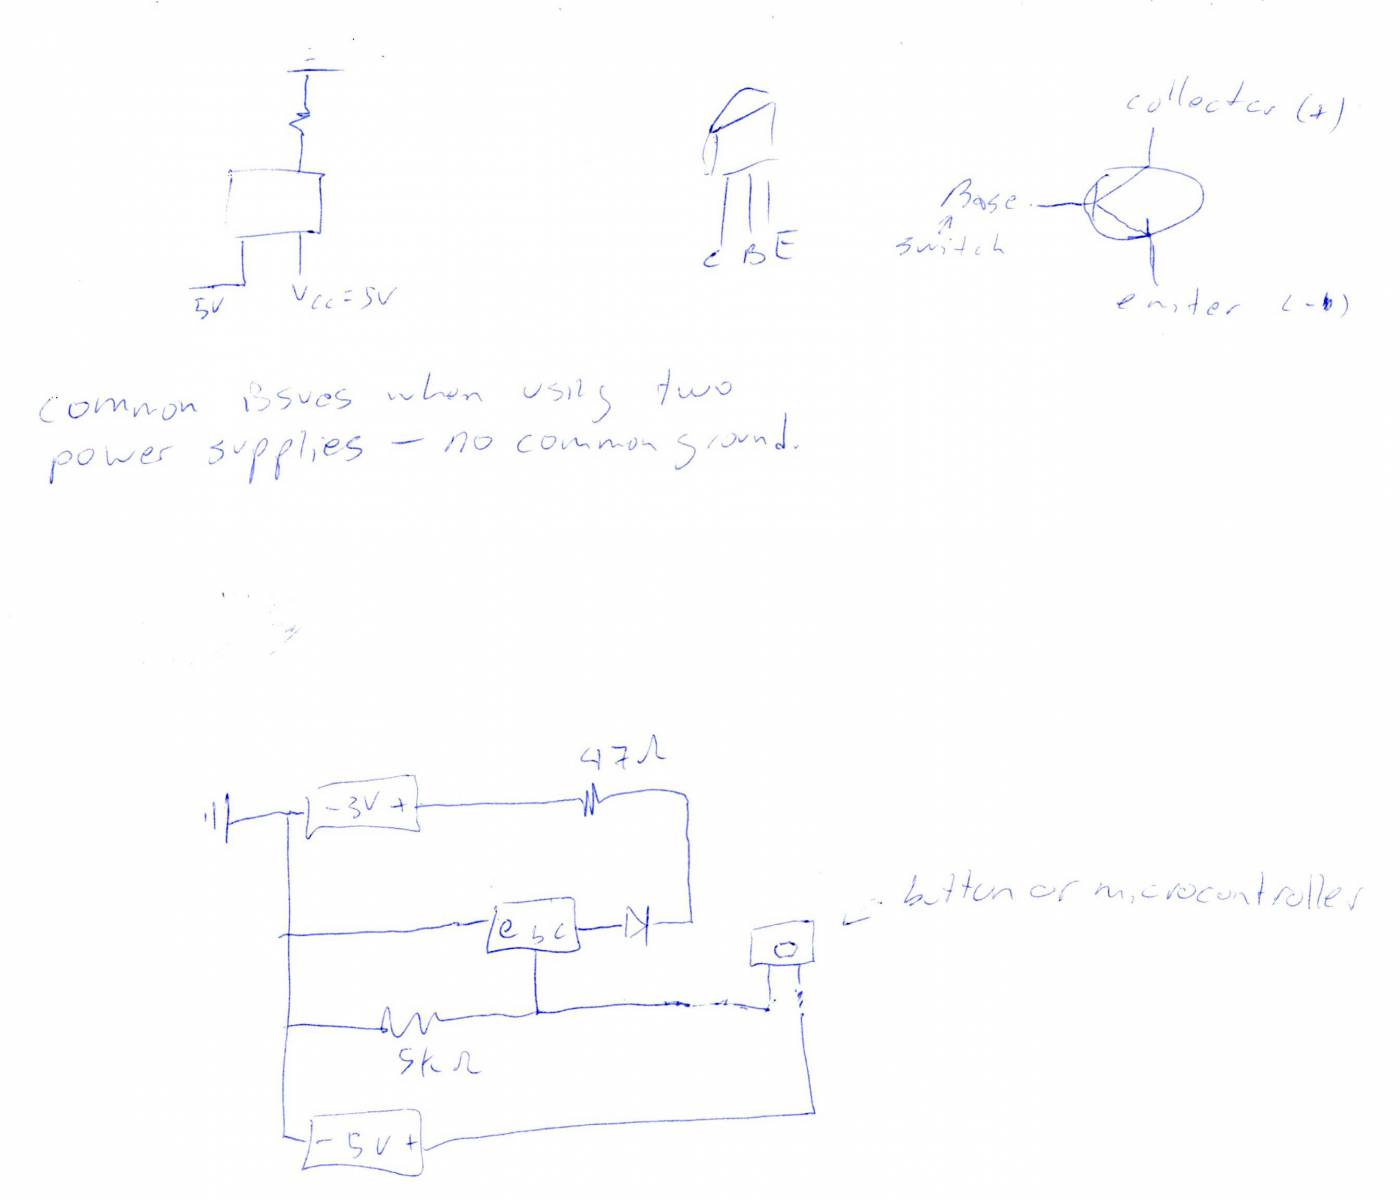 collector (+)
Base
switch
C B E
5V
Vcc = 5V
emiter (-)
common issues when using two
power supplies – no common ground.
47Ω
- 3V +
button or microcontroller
e b c
5kΩ
- 5V +